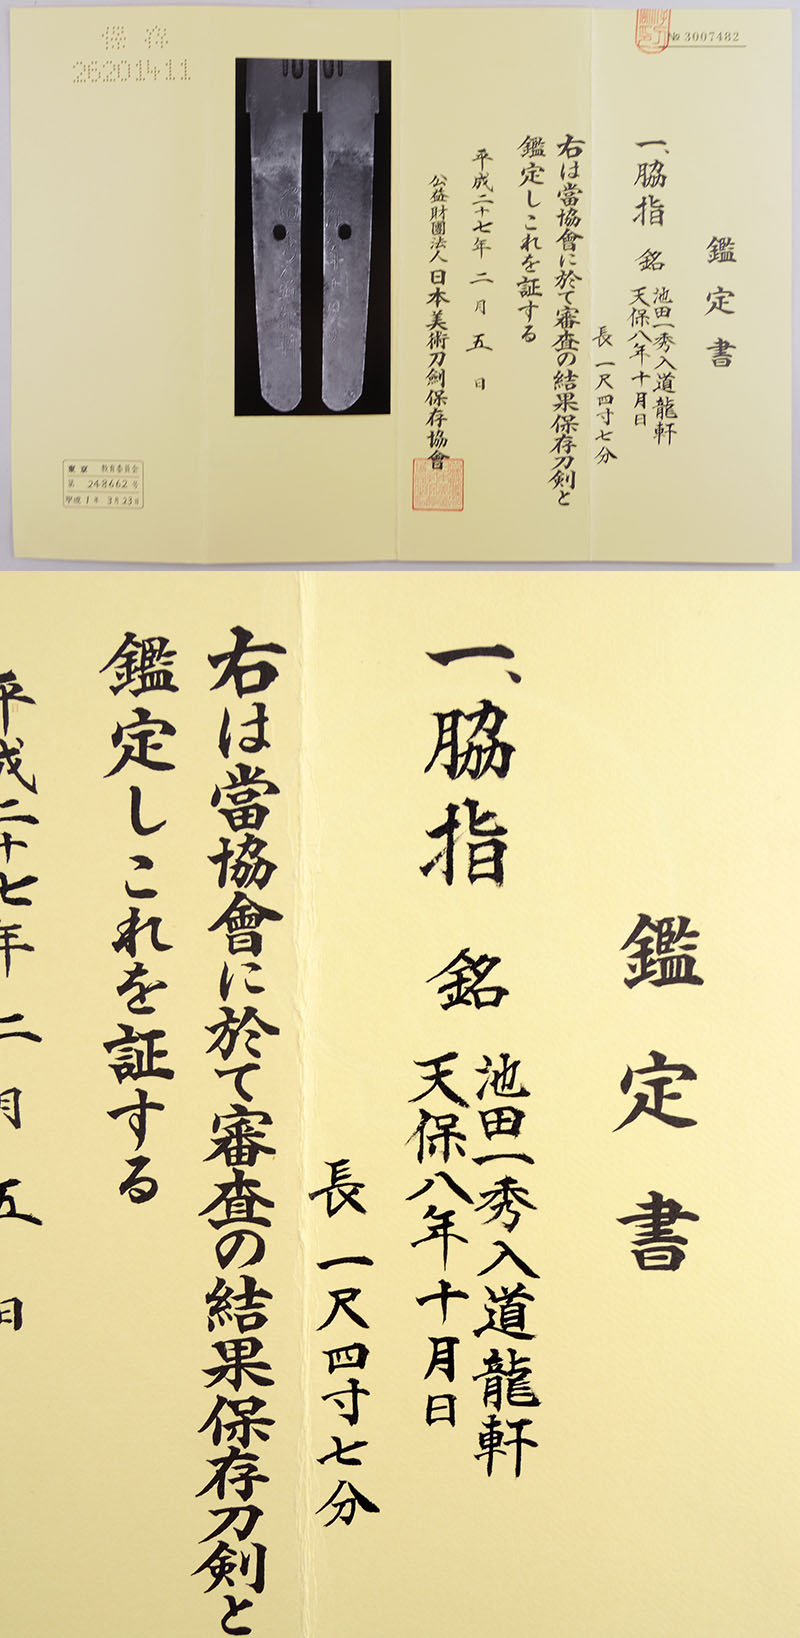 № 3007482
鑑定書
一、脇指 銘 池田一秀入道龍軒
天保八年十月日
長 一尺四寸七分
右は當協會に於て審査の結果保存刀剣と
鑑定しこれを証する
平成二十七年 二月 五日
公益財團法人 日本美術刀劍保存協會
保存
26201411
東京 教育委員会
第 248662 号
平成 1年 3月23日
鑑定書
一、脇指 銘 池田一秀入道龍軒
天保八年十月日
長 一尺四寸七分
右は當協會に於て審査の結果保存刀剣と
鑑定しこれを証する
平成二十七年 二月 五日